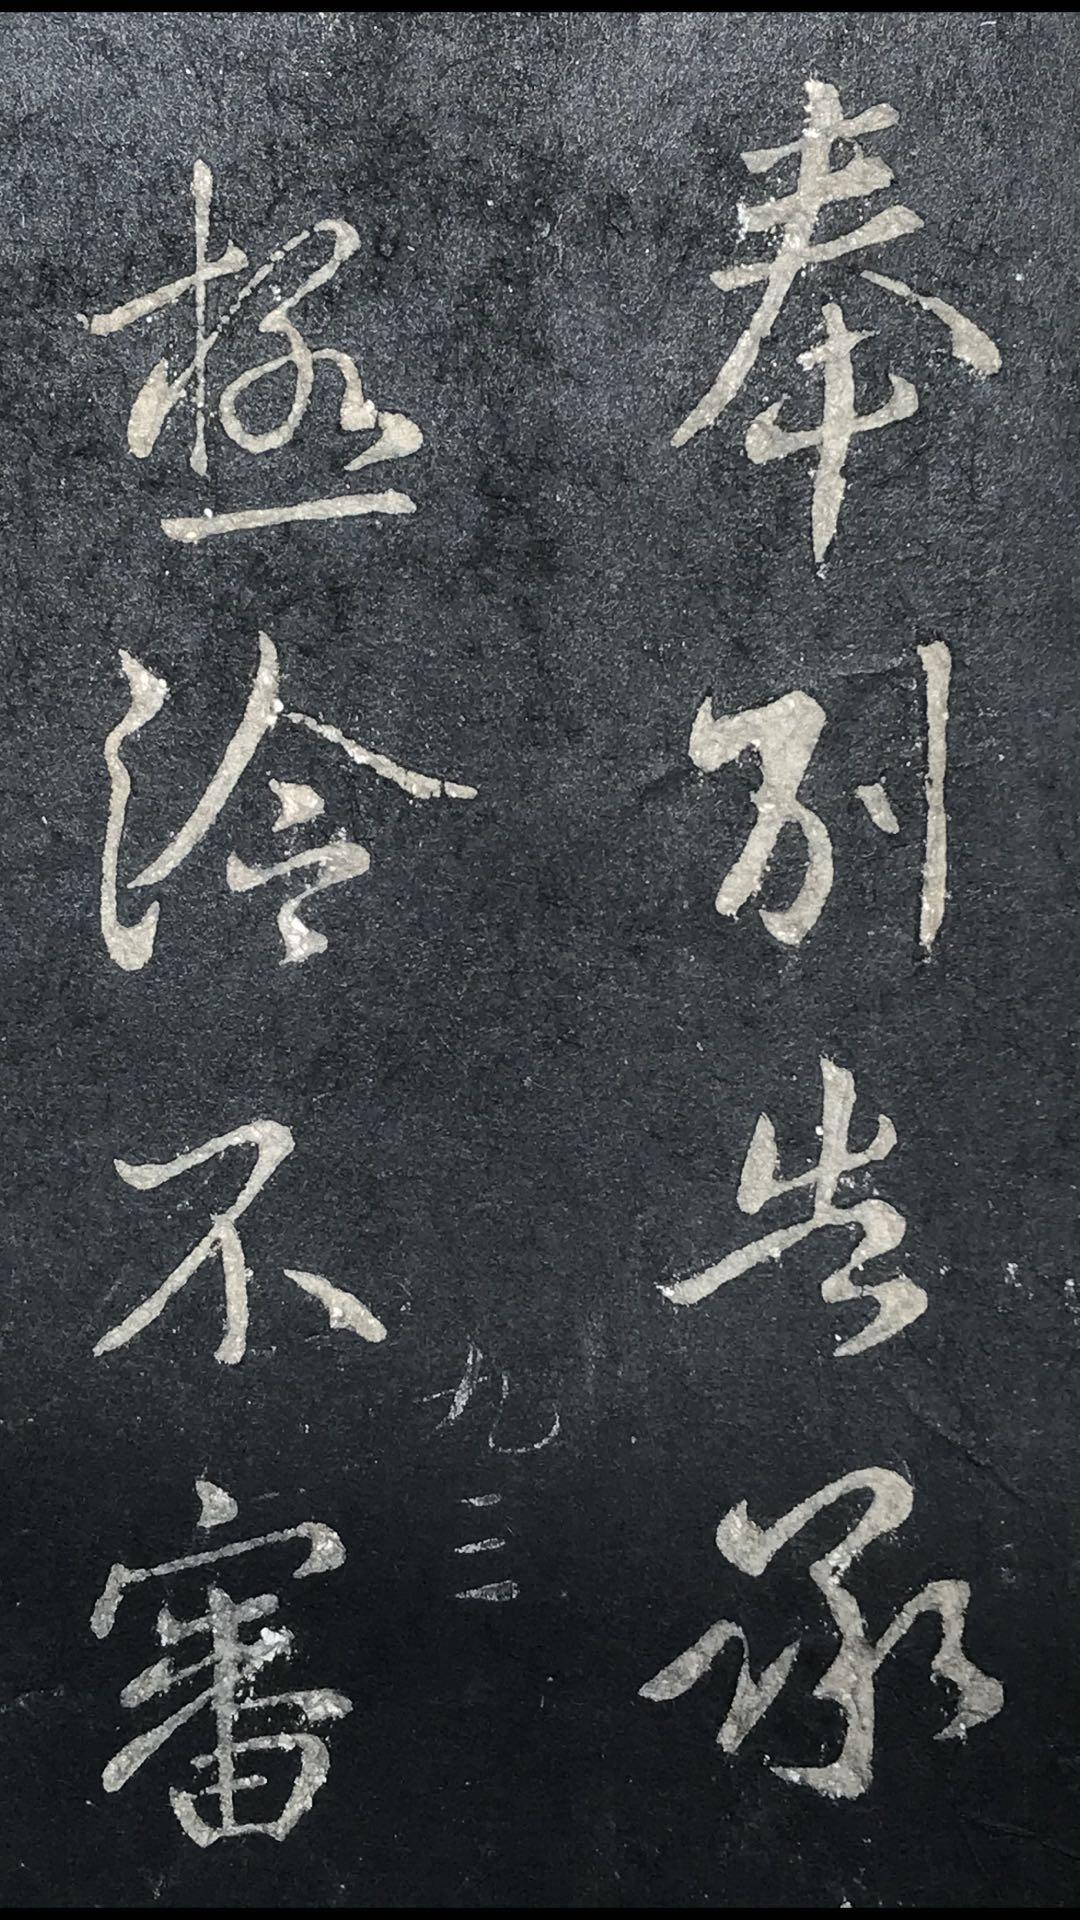 奉別告承
極冷不審
九三